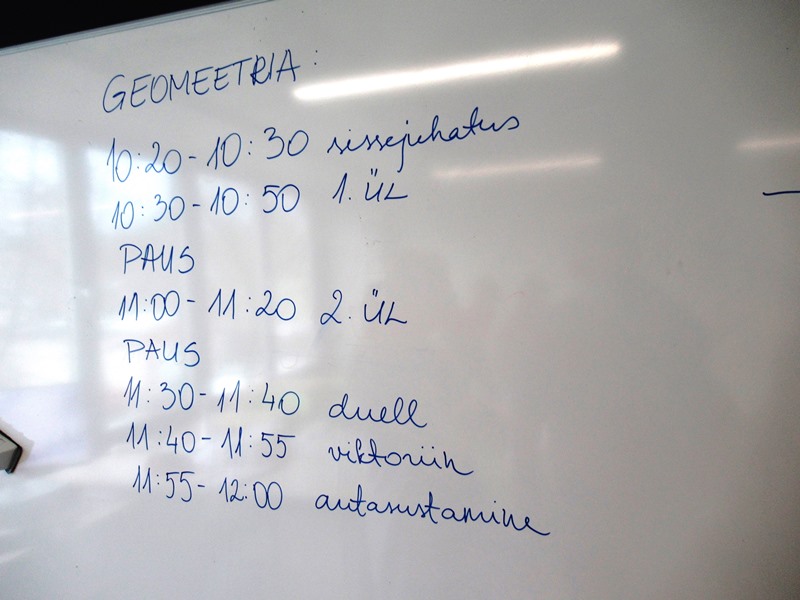 GEOMEETRIA:
10:20-10:30 sissejuhatus
10:30-10:50 1. ÜL
PAUS
11:00-11:20 2. ÜL
PAUS
11:30-11:40 duell
11:40-11:55 viktoriin
11:55-12:00 autasustamine